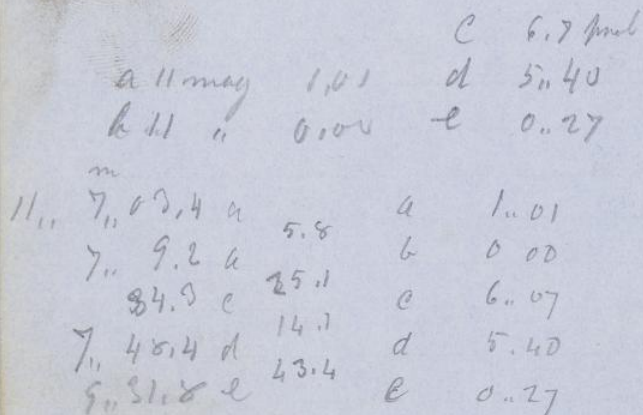 c 6.7
a 11 mag 1,01 d 5,,40
b 11 " 0,00 e 0..27
m
11,, 7,,03,4 a a 1..01
5.8
7,, 9.2 a b 0 00
25.1
34.3 c c 6..07
14.1
7,, 48,4 d d 5.40
43.4
9,,31,8 e e 0..27